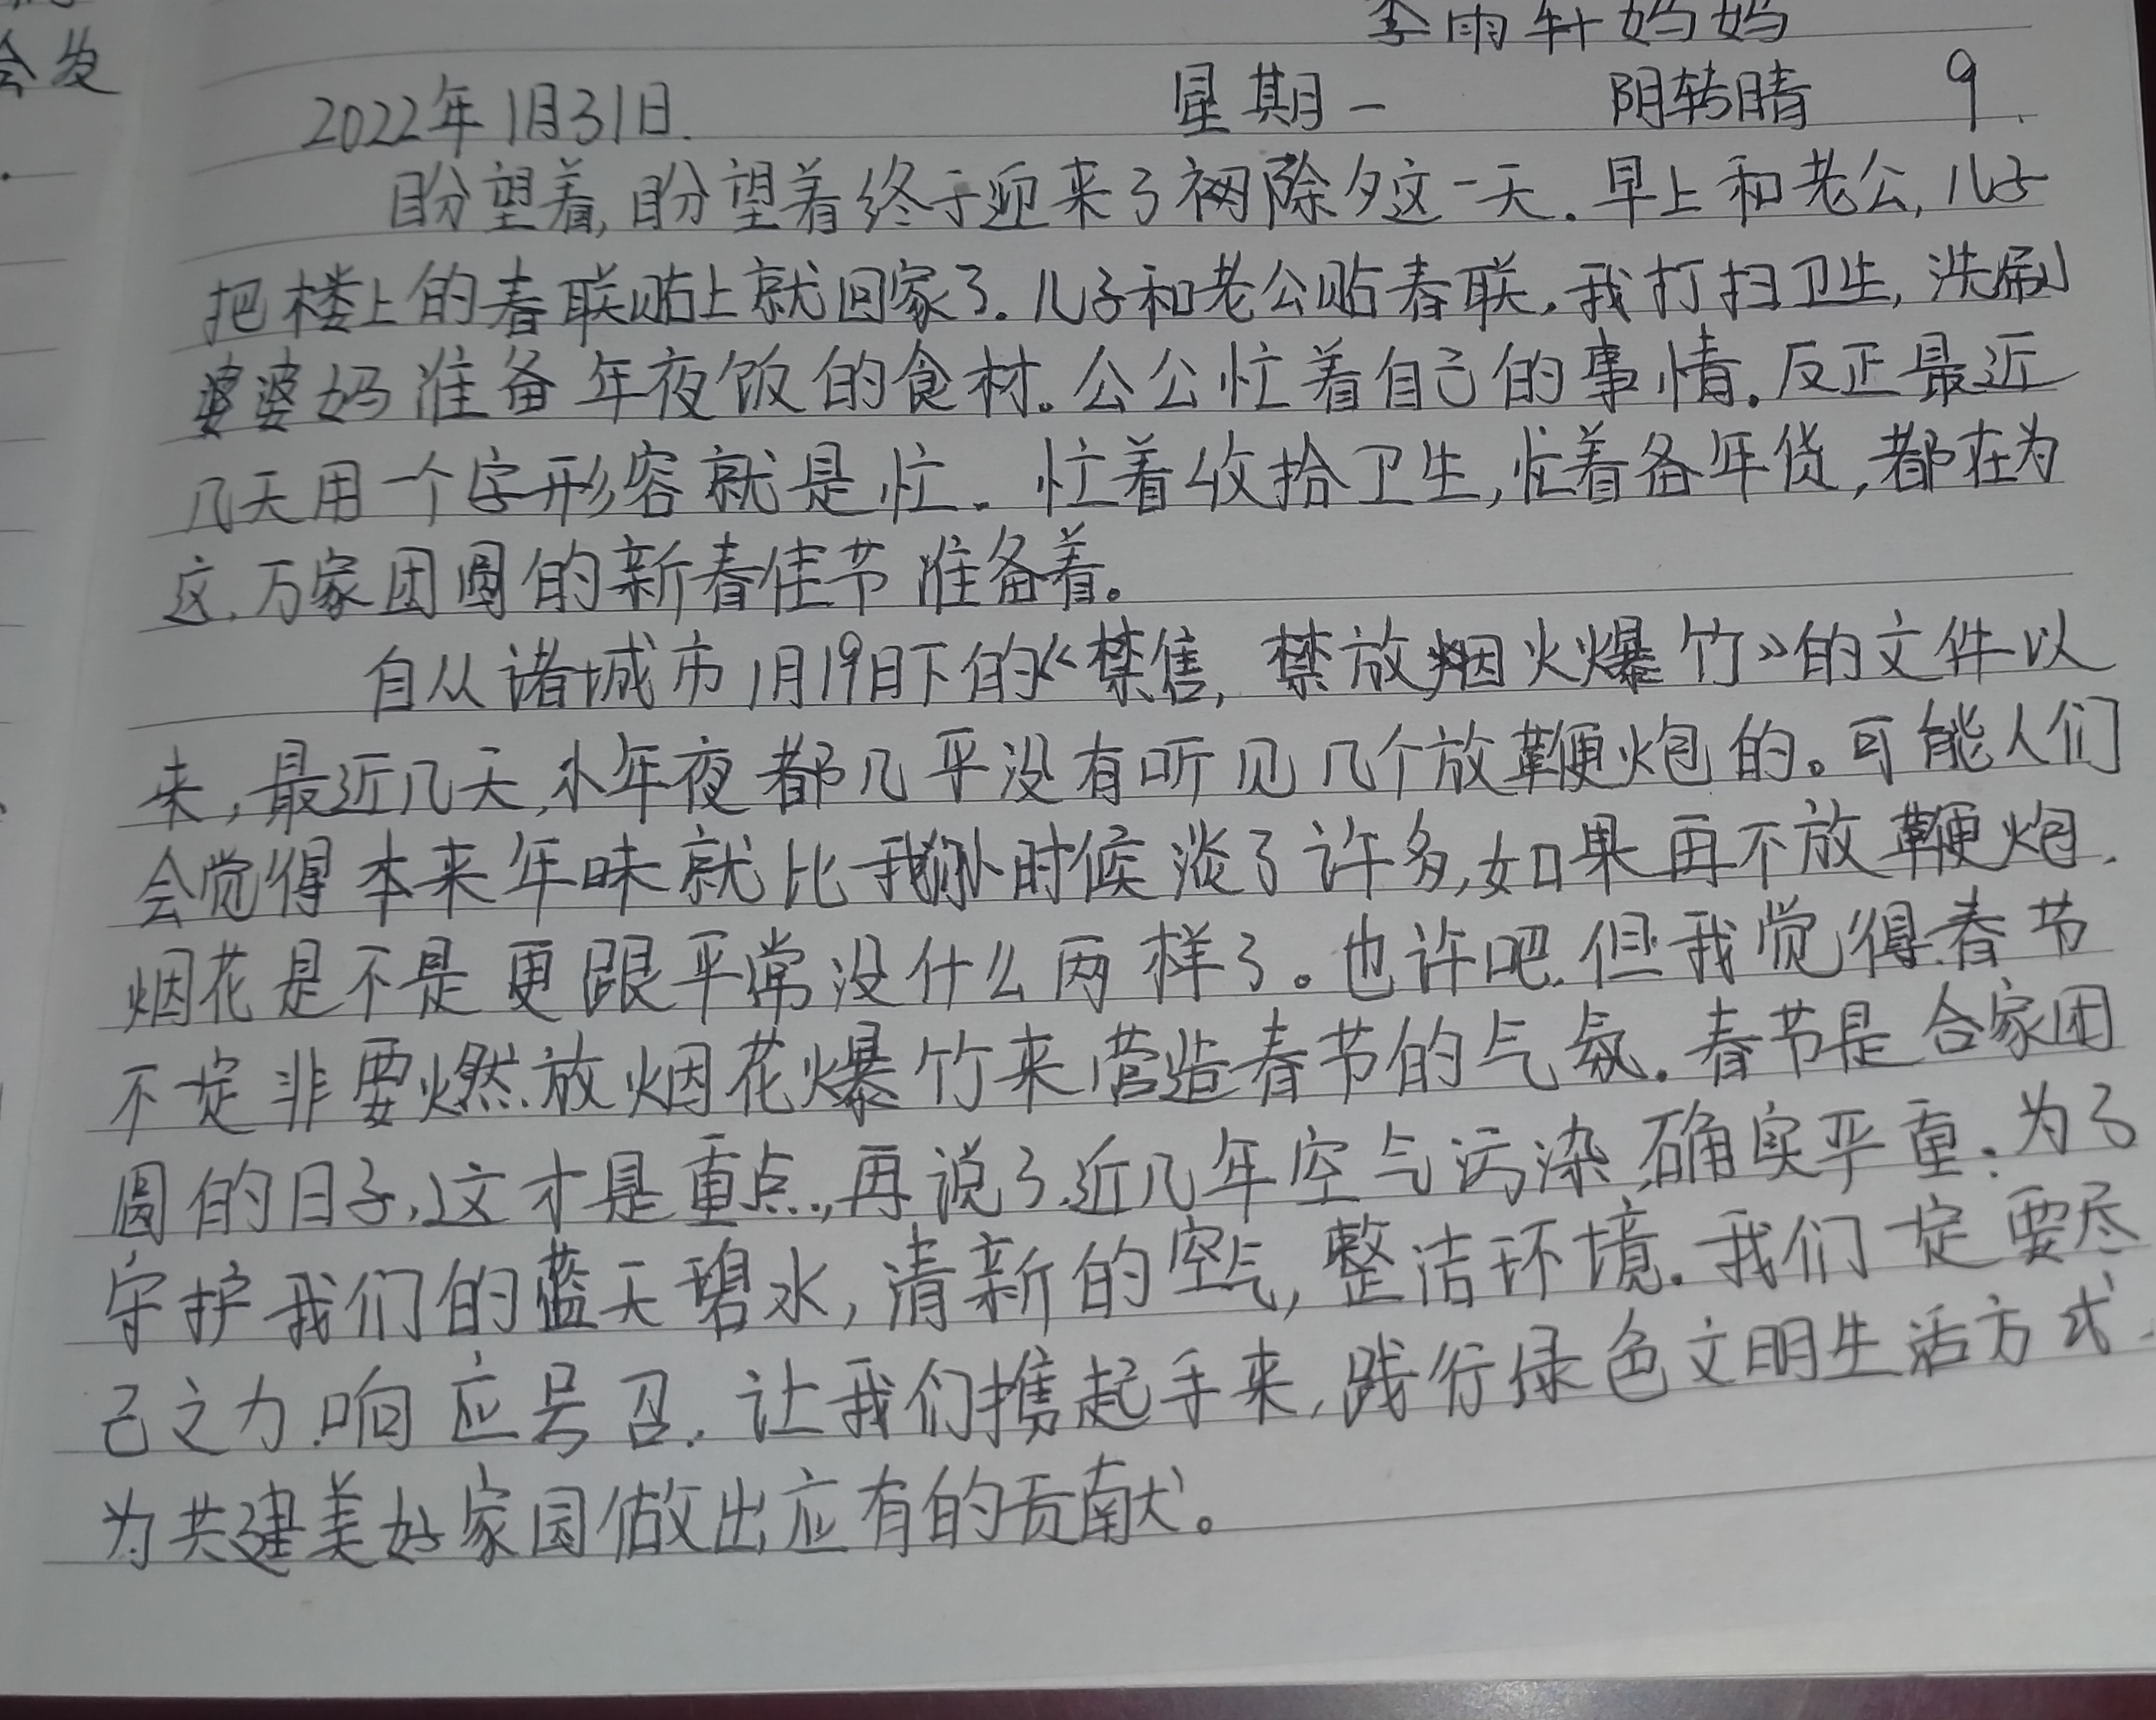 会发
李雨轩妈妈
2022年1月31日. 星期一 阴转晴 9.
盼望着,盼望着终于迎来了除夕这一天.早上和老公,儿子
把楼上的春联贴上就回家了.儿子和老公贴春联,我打扫卫生,洗刷
婆婆妈准备年夜饭的食材。公公忙着自己的事情。反正最近
几天用一个字形容就是忙.忙着收拾卫生,忙着备年货,都在为
这.万家团圆的新春佳节准备着。
自从诸城市1月19日下的《禁售,禁放烟火爆竹》的文件以
来,最近几天,小年夜都几乎没有听见几个放鞭炮的。可能人们
会觉得本来年味就比我们小时候淡了许多,如果再不放鞭炮.
烟花是不是更跟平常没什么两样了。也许吧.但我觉得春节
不定非要燃放烟花爆竹来营造春节的气氛.春节是合家团
圆的日子,这才是重点,再说了,近几年空气污染,确实严重.为了
守护我们的蓝天碧水,清新的空气,整洁环境.我们定要尽
己之力.响应号召.让我们携起手来,践行绿色文明生活方式.
为共建美好家园做出应有的贡献。